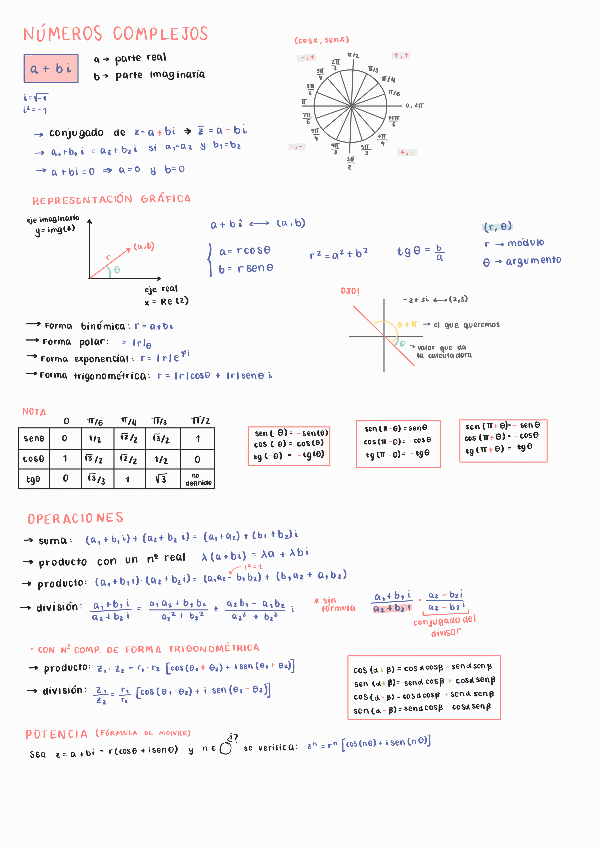 NÚMEROS COMPLEJOS
a + bi
a → parte real
b → parte imaginaria
i=√-1
i²=-1
→ conjugado de z=a+bi ⇒ z̄=a-bi
→ a₁+b₁i = a₂+b₂i si a₁=a₂ y b₁=b₂
→ a+bi=0 ⇒ a=0 y b=0
(cosx, senx)
-,+
+,+
-,-
+,-
π/2
π/3
π/4
π/6
0, 2π
π
REPRESENTACIÓN GRÁFICA
eje imaginario
y=img(z)
(a,b)
r
θ
eje real
x = Re(z)
a+bi ⟷ (a,b)
a=rcosθ
b=rsenθ
r²=a²+b²
tgθ = b/a
(r, θ)
r → modulo
θ → argumento
→ Forma binómica: r=a+bi
→ Forma polar: = |r|θ
→ Forma exponencial: r=|r|e^φi
→ Forma trigonométrica: r=|r|cosθ + |r|senθ i
OJO!
-2+3i ⟷ (2,3)
θ+π → el que queremos
θ → valor que da
la calculadora
NOTA
0 π/6 π/4 π/3 π/2
senθ 0 1/2 √2/2 √3/2 1
cosθ 1 √3/2 √2/2 1/2 0
tgθ 0 √3/3 1 √3 no definido
sen(-θ)=-sen(θ)
cos(-θ)=cos(θ)
tg(-θ) = -tg(θ)
sen(π-θ)=senθ
cos(π-θ)=-cosθ
tg(π-θ)=-tgθ
sen(π+θ)=-senθ
cos(π+θ)=-cosθ
tg(π+θ)= tgθ
OPERACIONES
→ suma: (a₁+b₁i)+(a₂+b₂i)=(a₁+a₂)+(b₁+b₂)i
→ producto con un nº real λ(a+bi)=λa+λbi
→ producto: (a₁+b₁i)·(a₂+b₂i)=(a₁a₂-b₁b₂)+(b₁a₂+a₁b₂)
→ división: (a₁+b₁i)/(a₂+b₂i) = (a₁a₂+b₁b₂)/(a₂²+b₂²) + (a₂b₁-a₁b₂)/(a₂²+b₂²) i
* sin
fórmula
(a₁+b₁i)/(a₂+b₂i) · (a₂-b₂i)/(a₂-b₂i)
conjugado del
divisor
· CON Nº COMP. DE FORMA TRIGONOMÉTRICA
→ producto: z₁·z₂=r₁·r₂[cos(θ₁+θ₂)+isen(θ₁+θ₂)]
→ división: z₁/z₂ = r₁/r₂ [cos(θ₁-θ₂)+i sen(θ₁-θ₂)]
cos(α+β)=cosαcosβ-senαsenβ
sen(α+β)=senαcosβ+cosαsenβ
cos(α-β)=cosαcosβ+senαsenβ
sen(α-β)=senαcosβ-cosαsenβ
POTENCIA (FÓRMULA DE MOIVRE)
Sea z=a+bi=r(cosθ+isenθ) y n∈ ¿? se verifica: zⁿ=rⁿ[cos(nθ)+isen(nθ)]